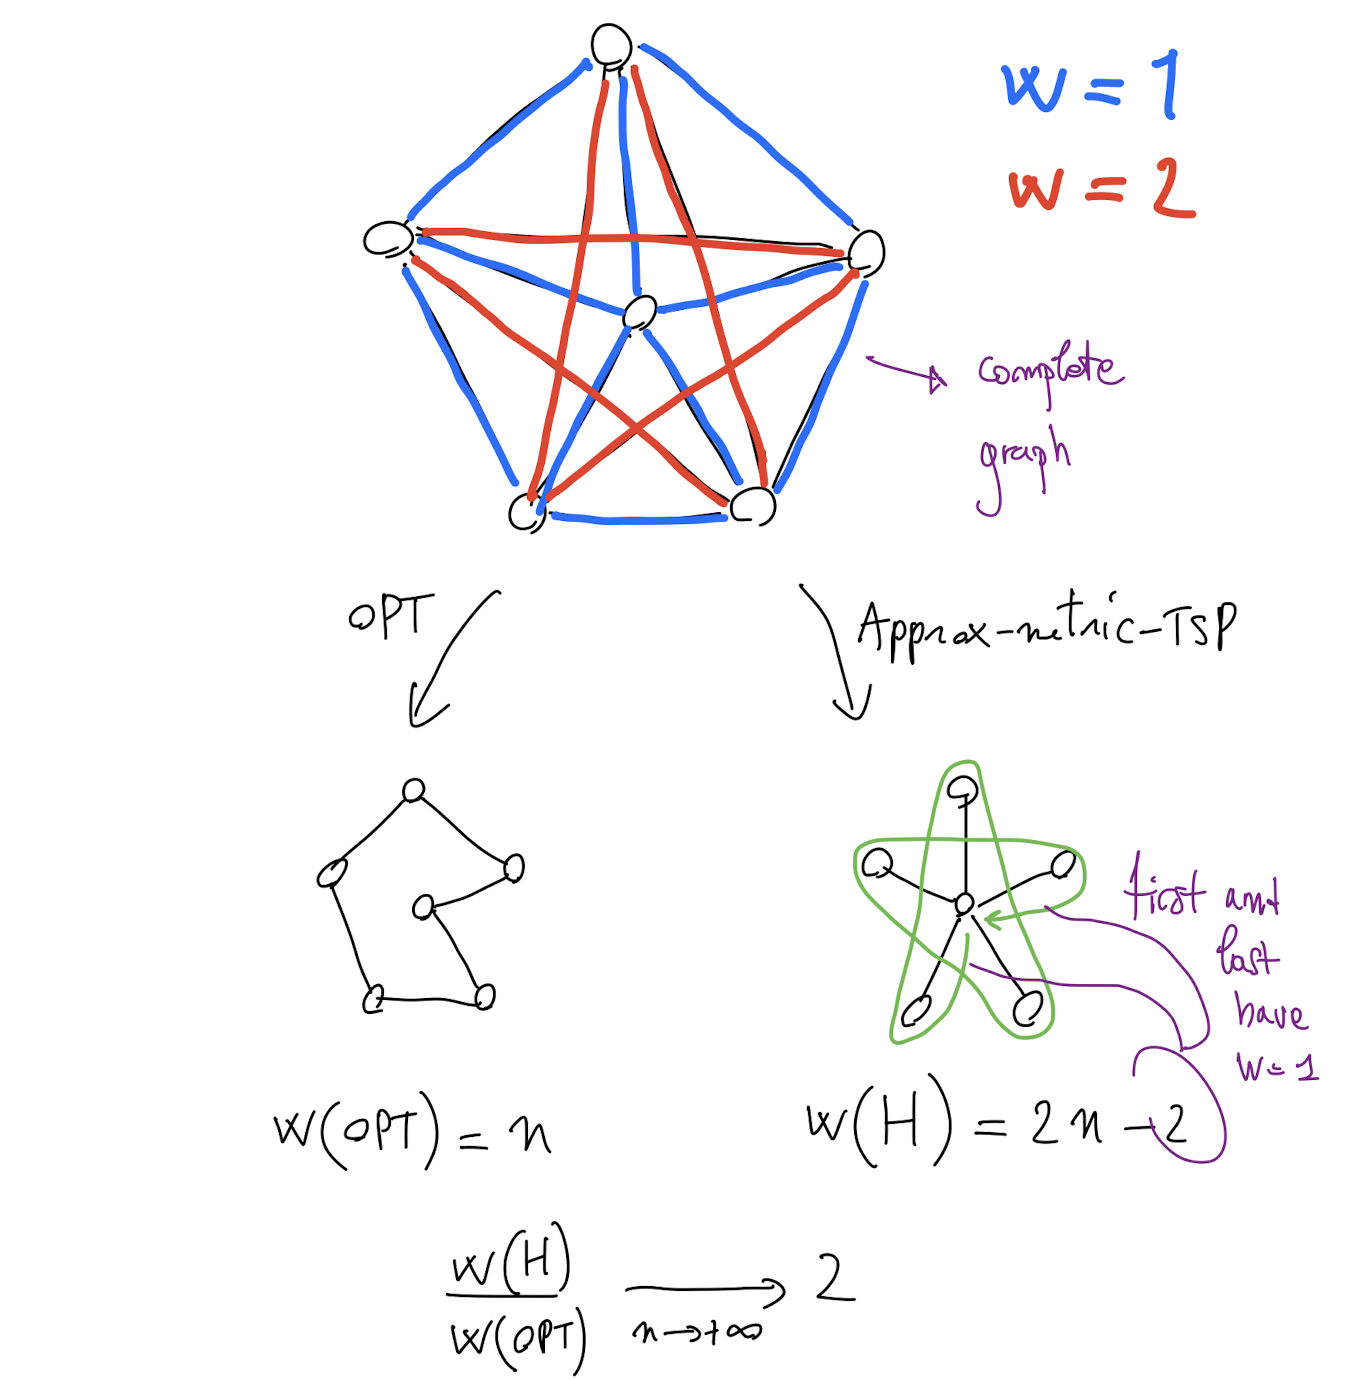 w = 1
w = 2
complete
graph
OPT
Approx-metric-TSP
first and
last
have
w=1
w(OPT) = n
w(H) = 2n - 2
w(H)
w(OPT)
n→+∞
2